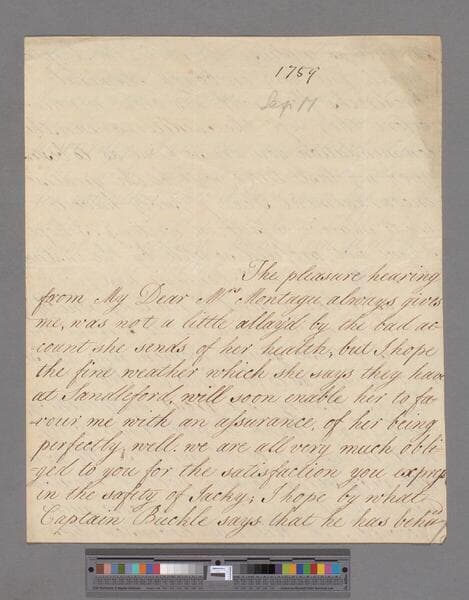 1759
Sep: 17
The pleasure hearing
from My Dear Mrs Montagu always gives
me, was not a little allay'd by the bad ac-
-count she sends of her health, but I hope
the fine weather which she says they have
at Sandleford, will soon enable her to fa-
-vour me with an assurance of her being
perfectly well. we are all very much obli-
ged to you for the satisfaction you express
in the safety of Jacky; I hope by what
Captain Buckle says that he has behav'd